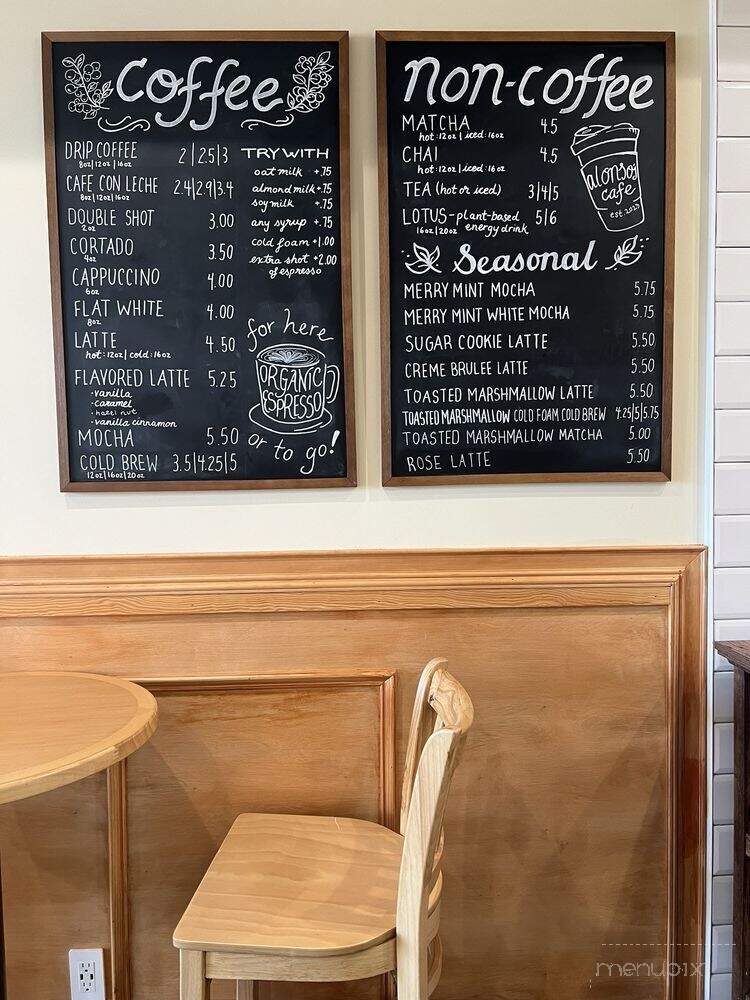 coffee
DRIP COFFEE 2|2.5|3
8oz|12oz|16oz
CAFE CON LECHE 2.4|2.9|3.4
8oz|12oz|16oz
DOUBLE SHOT 3.00
2oz
CORTADO 3.50
4oz
CAPPUCCINO 4.00
6oz
FLAT WHITE 4.00
8oz
LATTE 4.50
hot:12oz|cold:16oz
FLAVORED LATTE 5.25
·vanilla
·caramel
·hazel nut
·vanilla cinnamon
MOCHA 5.50
COLD BREW 3.5|4.25|5
12oz|16oz|20oz
TRY WITH
oat milk +.75
almond milk +.75
soy milk +.75
any syrup +.75
cold foam +1.00
extra shot +2.00
of espresso
for here
ORGANIC
ESPRESSO
or to go!
non-coffee
MATCHA 4.5
hot:12oz|iced:16oz
CHAI 4.5
hot:12oz|iced:16oz
TEA (hot or iced) 3|4|5
LOTUS-plant-based 5|6
16oz|20oz energy drink
alonsos
cafe
est 2023
Seasonal
MERRY MINT MOCHA 5.75
MERRY MINT WHITE MOCHA 5.75
SUGAR COOKIE LATTE 5.50
CREME BRULEE LATTE 5.50
TOASTED MARSHMALLOW LATTE 5.50
TOASTED MARSHMALLOW COLD FOAM COLD BREW 4.25|5|5.75
TOASTED MARSHMALLOW MATCHA 5.00
ROSE LATTE 5.50
menupix